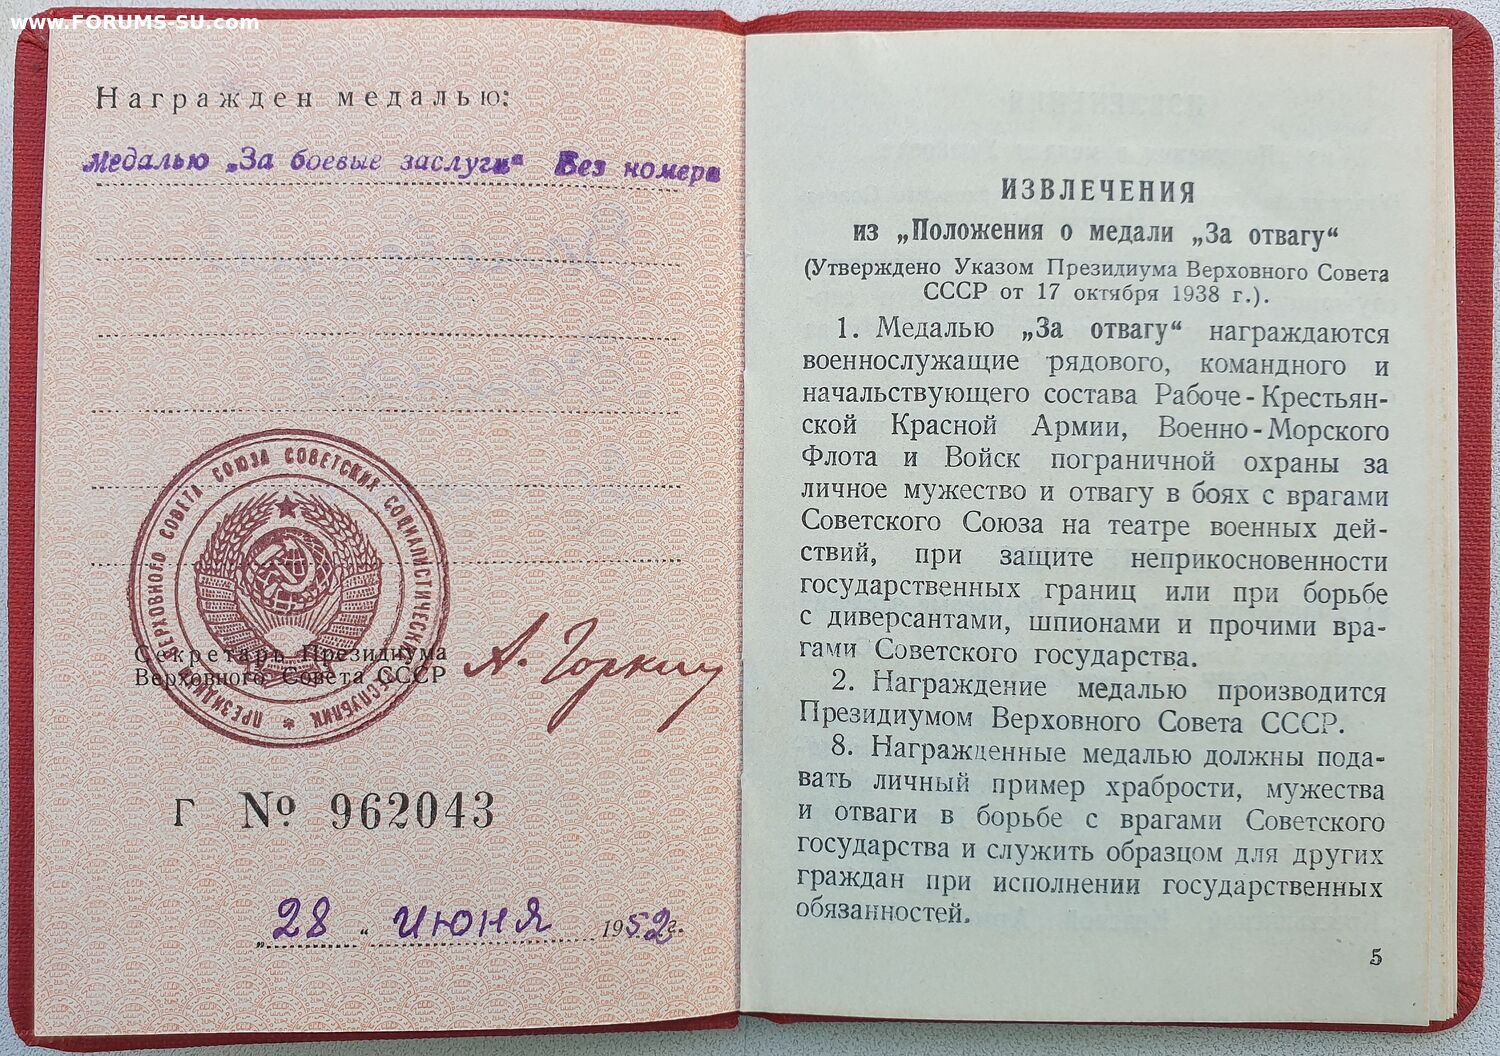 www.FORUMS-SU.com
Награжден медалью:
медалью „За боевые заслуги“ Без номера
ПРЕЗИДИУМ ВЕРХОВНОГО СОВЕТА СОЮЗА СОВЕТСКИХ СОЦИАЛИСТИЧЕСКИХ РЕСПУБЛИК *
Секретарь Президиума
Верховного Совета СССР
А. Горкин
Г № 962043
„28“ июня 1952 г.
ИЗВЛЕЧЕНИЯ
из „Положения о медали „За отвагу“
(Утверждено Указом Президиума Верховного Совета
СССР от 17 октября 1938 г.).
1. Медалью „За отвагу“ награждаются
военнослужащие рядового, командного и
начальствующего состава Рабоче-Крестьян-
ской Красной Армии, Военно-Морского
Флота и Войск пограничной охраны за
личное мужество и отвагу в боях с врагами
Советского Союза на театре военных дей-
ствий, при защите неприкосновенности
государственных границ или при борьбе
с диверсантами, шпионами и прочими вра-
гами Советского государства.
2. Награждение медалью производится
Президиумом Верховного Совета СССР.
8. Награжденные медалью должны пода-
вать личный пример храбрости, мужества
и отваги в борьбе с врагами Советского
государства и служить образцом для других
граждан при исполнении государственных
обязанностей.
5